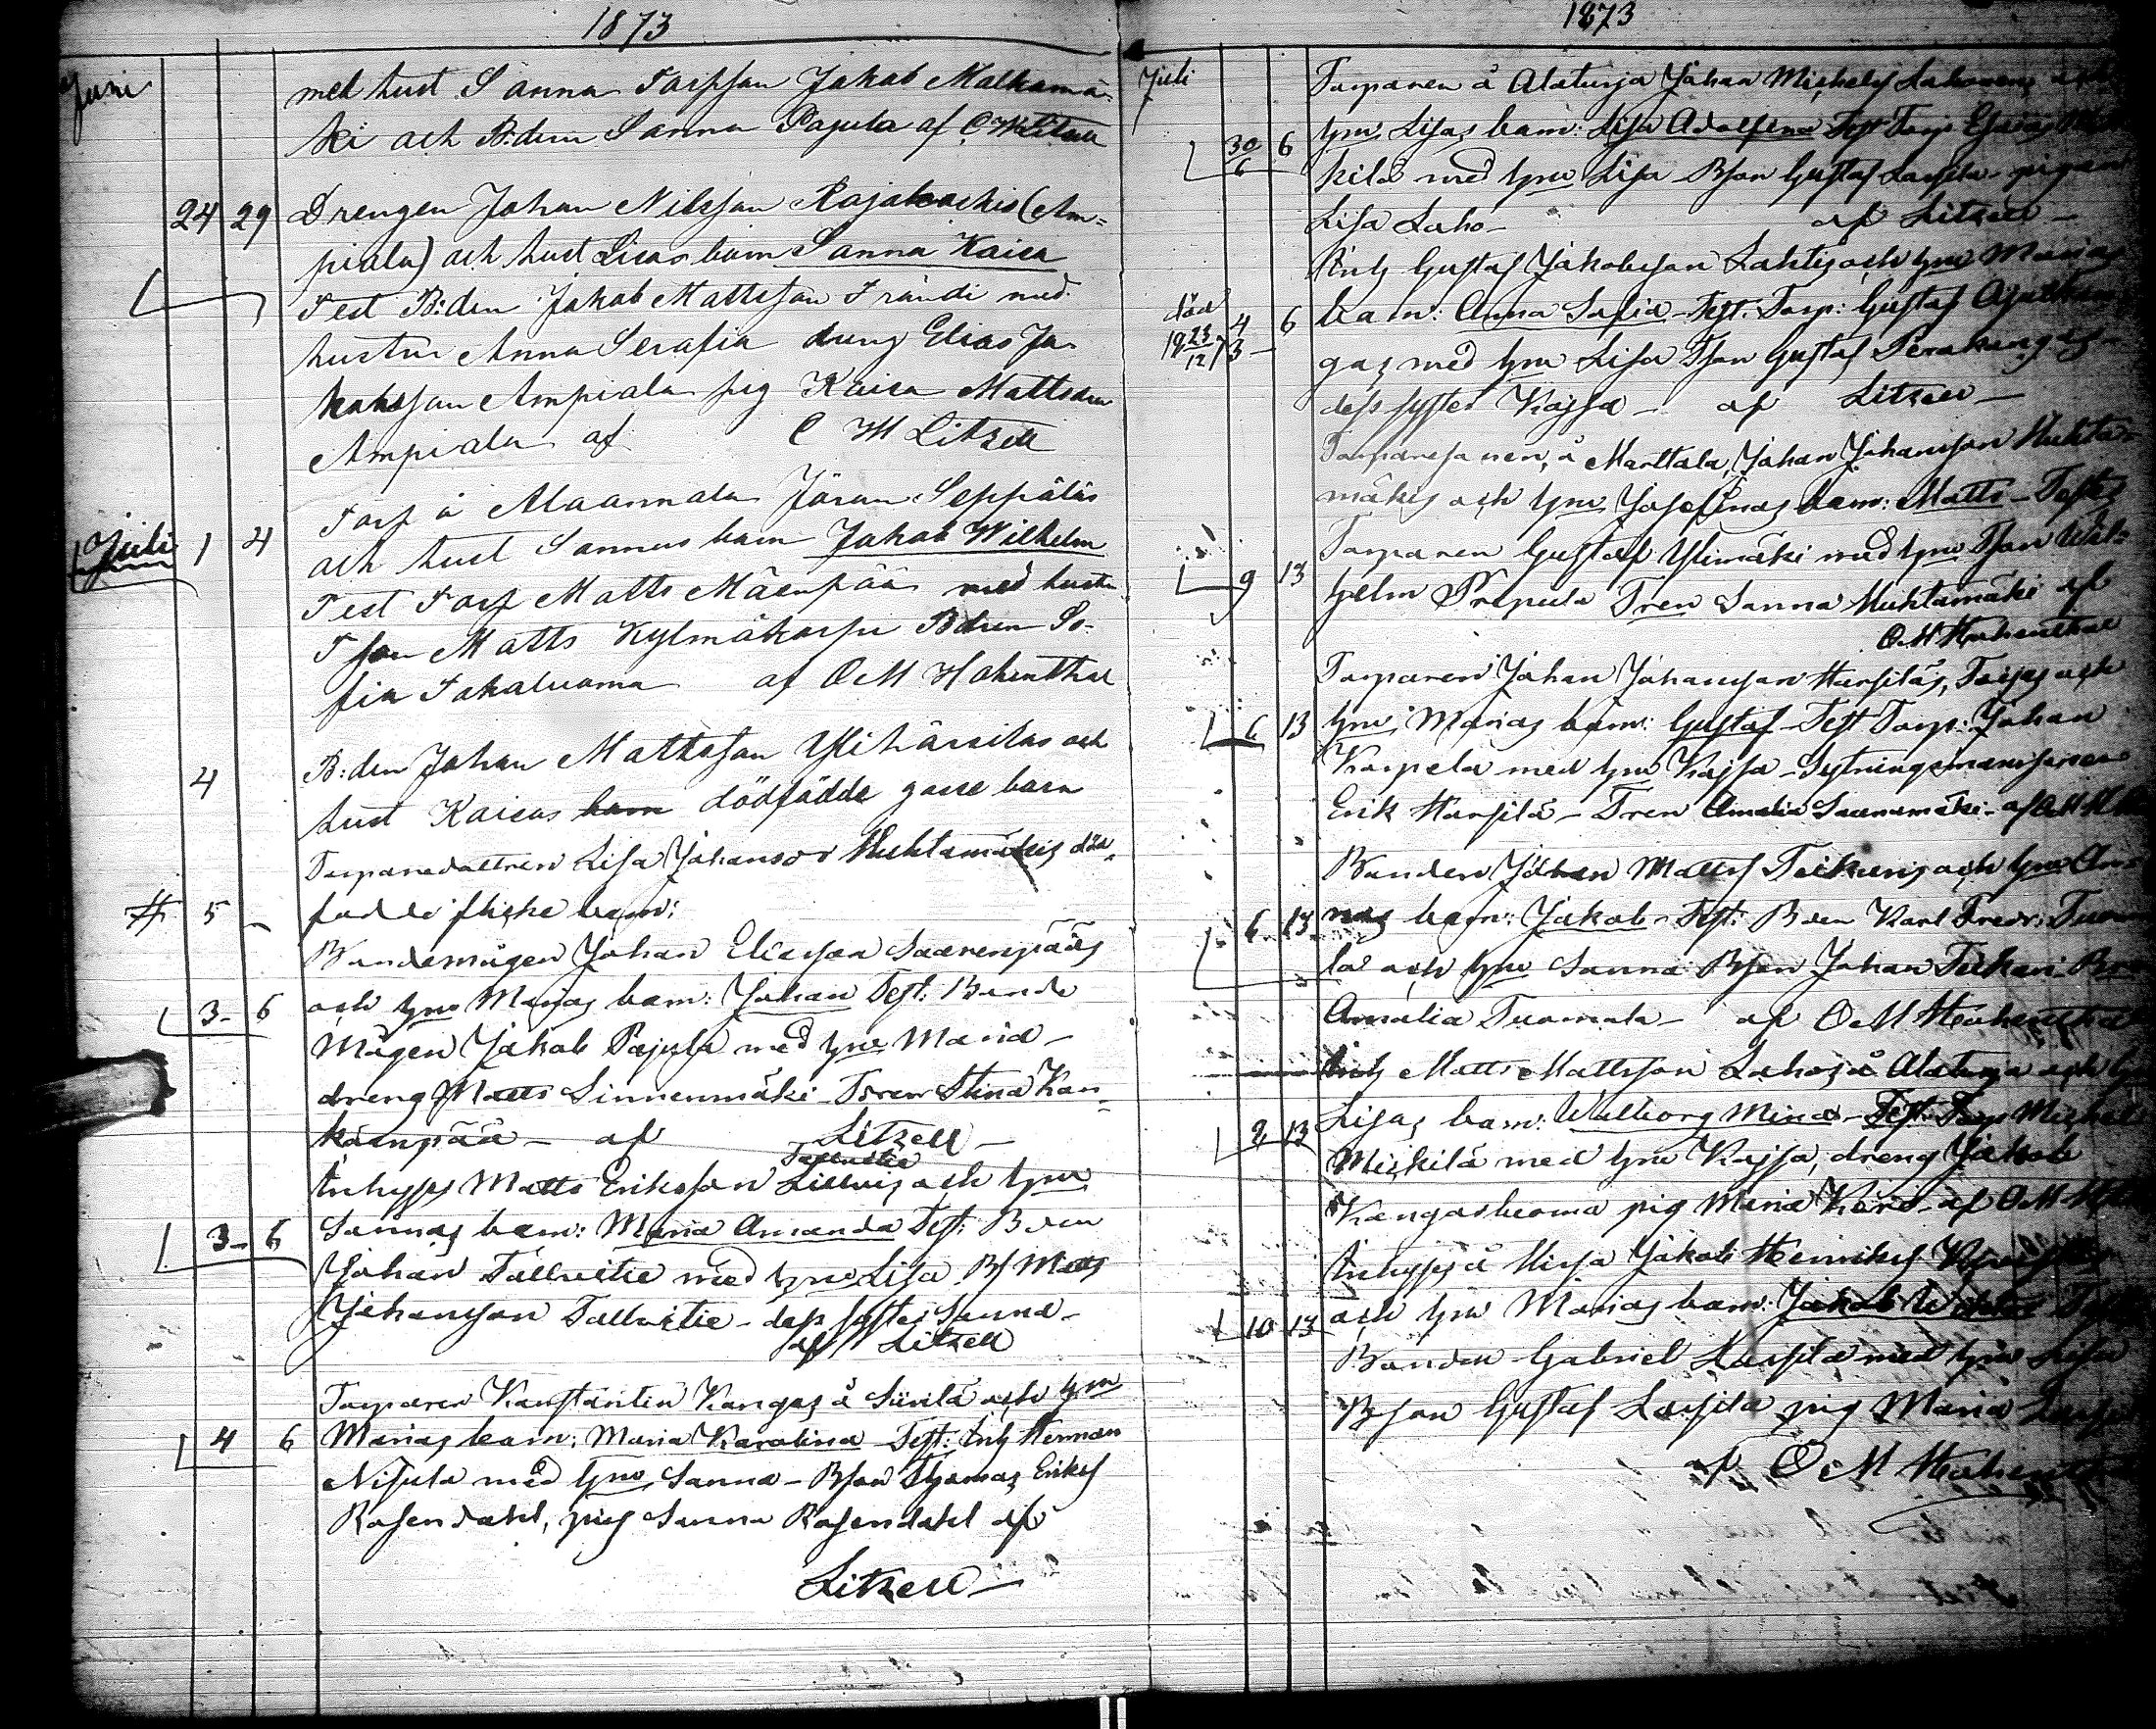 1873
Juni
med hust Sanna Torpson Jakob Malkamä-
ki och B:drn Sanna Pajula af C W Litzell
24 29 Drengen Johan Nilsson Rajakoskis (Am=
piala) och hust Lisas barn Sanna Kaisa
Test B:den Jakob Mattsson Frändi med
hustru Anna Serafia dreng Elias Ja-
kobsson Ampiala pig Kaisa Mattsdr
Ampiala af C W Litzell
Juli 1 4 Torp å Alaannala Jöran Seppäläs
och hust Sannas barn Jakob Wilhelm
Test Torp Matts Mäenpää med hustr
Tson Matts Kylmäkorpi Bdren So-
fia Jokaluoma af O M Hohenthal
4 B:den Johan Mattsson Ylihärsilas och
hust Kaisas barn dödfödde gosse barn
Torparedottren Lisa Johansdr Huhtamäkis död-
5 - fodde flicke barn:
Bondemågen Johan Eliasson Saarenpääs
3- 6 och hru Marias barn: Johan Test: Bonde
Mågen Jakob Pajula med hru Maria -
dreng Matts Linnenmäki Tdren Stina Kan-
kaanpää - af Litzell -
Tallvitie
Inhyss Matts Eriksson och hru
3- 6 Sannas barn: Maria Amanda Test: Bden
Johan Tallvitie med hru Lisa Bs Matts
Johansson Tallvitie - dess syster Sanna -
af Litzell
Torparen Konstantin Kangas å Siirilä och hru
4 6 Marias barn: Maria Karolina Test: Inh Herman
Nisula med hru Sanna - Bson Thomas Eriks
Rosendahl, pig Sanna Rosendahl af
Litzell -
1873
Juli
Torparen å Alaturja Johan Michels
30/6 6 hru Lisas barn: Lisa Adolfina Test Torp Esaias
kilä med hru Lisa Bson Gustaf Lassila - pigan
Lisa Laho - af Litzell -
Inh Gustaf Jakobsson Lahtis och hru Marias
död 23/12 1873 4 6 barn: Anna Sofia - Test: Torp: Gustaf
gas med hru Lisa Tson Gustaf Perkangas -
dess syster Kajsa - af Litzell -
Torparesonen, å Marttala, Johan Johansson Huhta-
mäkis och hru Josefinas barn: Matts - Test:
Torparen Gustaf Ylimäki med hru Tson Wil-
9 13 helm Prepula Tdren Sanna Huhtamäki af
O M Hohenthal
Torparen Johan Johansson Harsiläs, Torjas och
6 13 hru Marias barn: Gustaf - Test Torp: Johan
Karpela med hru Kajsa - Sytningsmannssonen
Erik Harsilä - Tdren Amalia Saarimäki - af O M H
Bonden Johan Matts Teikaris och hru An-
6 13 nas barn: Jakob - Test: Bden Karl Fredr: Tuoma
la och hru Sanna Bson Johan Teikari
Amalia Tuomala - af O M Hohenthal
Inh Matts Mattsson Lahos å Alaturja och
2 13 Lisas barn: Wallborg Mina - Test: Torp Michel
Mickilä med hru Kajsa, dreng Jakob
Kangasluoma pig Maria af O M
Inhyss å Hirsa Jakob Henriks
10 13 och hru Marias barn: Jakob
Bonden Gabriel Lassila med hru Lisa
Bson Gustaf Lassila pig Maria
af O M Hohenthal